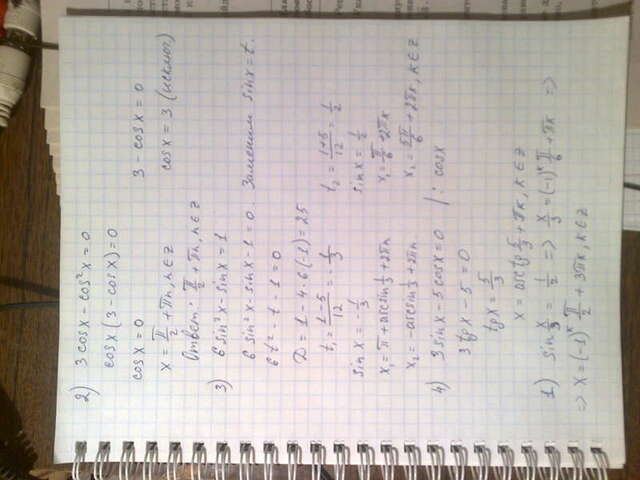 2) 3 cosx - cos²x = 0
cosx (3 - cosx) = 0
cosx = 0   3 - cosx = 0
x = π/2 + πn, n ∈ Z   cosx = 3 (исключ)
Ответ: π/2 + πn, n ∈ Z
3) 6 sin²x - sinx = 1
6 sin²x - sinx - 1 = 0. Заменим sinx = t.
6t² - t - 1 = 0
D = 1 - 4·6(-1) = 25
t₁ = (1-5)/12 = -1/3   t₂ = (1+5)/12 = 1/2
sin x = -1/3   sin x = 1/2
x₁ = π + arcsin 1/3 + 2πn   x₁ = π/6 + 2πk
x₂ = -arcsin 1/3 + 2πn   x₂ = 5π/6 + 2πk, k ∈ Z
4) 3 sinx - 5 cosx = 0 /: cosx
3 tgx - 5 = 0
tgx = 5/3
x = arctg 5/3 + πk, k ∈ Z
1) sin x/3 = 1/2 => x/3 = (-1)ᵏ π/6 + πk =>
=> x = (-1)ᵏ π/2 + 3πk, k ∈ Z